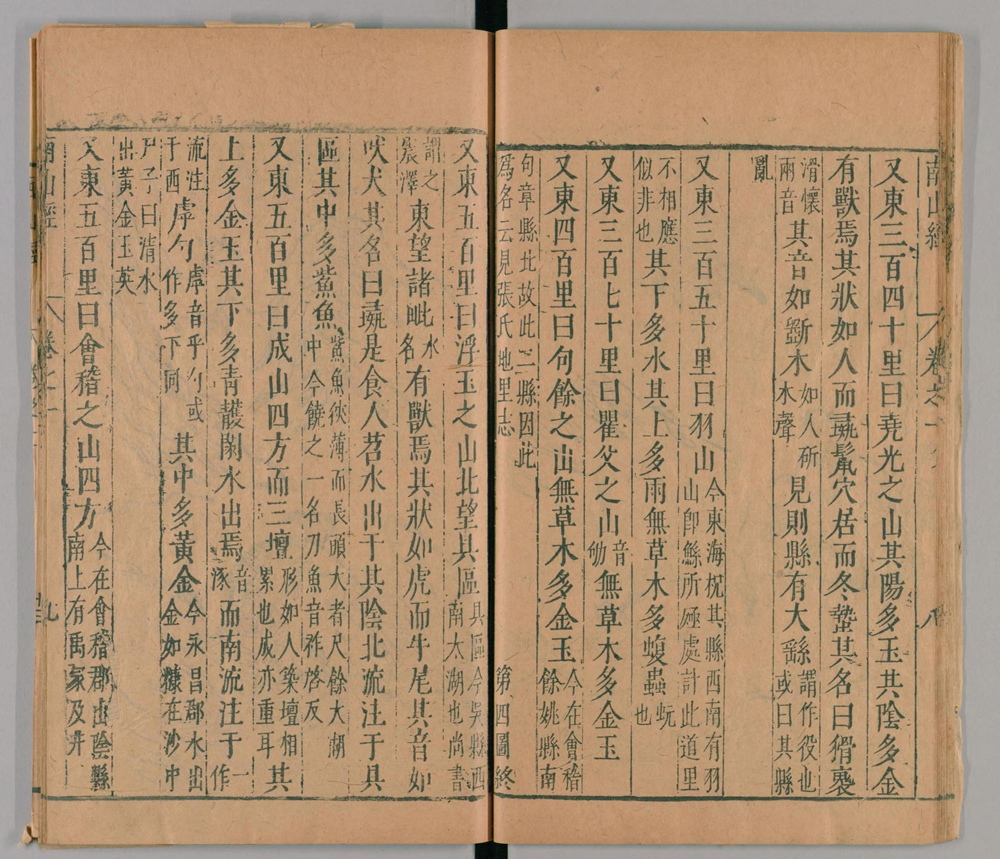 南山經 卷之一 八
又東三百四十里曰堯光之山其陽多玉其陰多金
有獸焉其狀如人而彘鬣穴居而冬蟄其名曰猾褢
滑懷兩音其音如斲木如人斫木聲見則縣有大繇謂作役也或曰其縣
亂
又東三百五十里曰羽山今東海祝其縣西南有羽山卽鯀所殛處計此道里
不相應似非也其下多水其上多雨無草木多蝮蟲蚖也
又東三百七十里曰瞿父之山音劬無草木多金玉
又東四百里曰句餘之山無草木多金玉今在會稽餘姚縣南
句章縣北故此二縣因此爲名云見張氏地里志 第四圖終
又東五百里曰浮玉之山北望具區具區今吳縣西南太湖也尚書
謂之震澤東望諸㫼水名有獸焉其狀如虎而牛尾其音如
吠犬其名曰彘是食人苕水出于其陰北流注于具
區其中多鮆魚鮆魚狹薄而長頭大者尺餘大湖中今饒之一名刀魚音祚啓反
又東五百里曰成山四方而三壇形如人築壇相累也成亦重耳
上多金玉其下多青雘䦷水出焉音涿而南流注于一作
流注于西虖勺虖音乎勺或作多下同其中多黃金今永昌郡水出金如糠在沙中
尸子曰清水出黃金玉英
又東五百里曰會稽之山四方今在會稽郡山陰縣南上有禹冢及井
南山經 卷之一 九